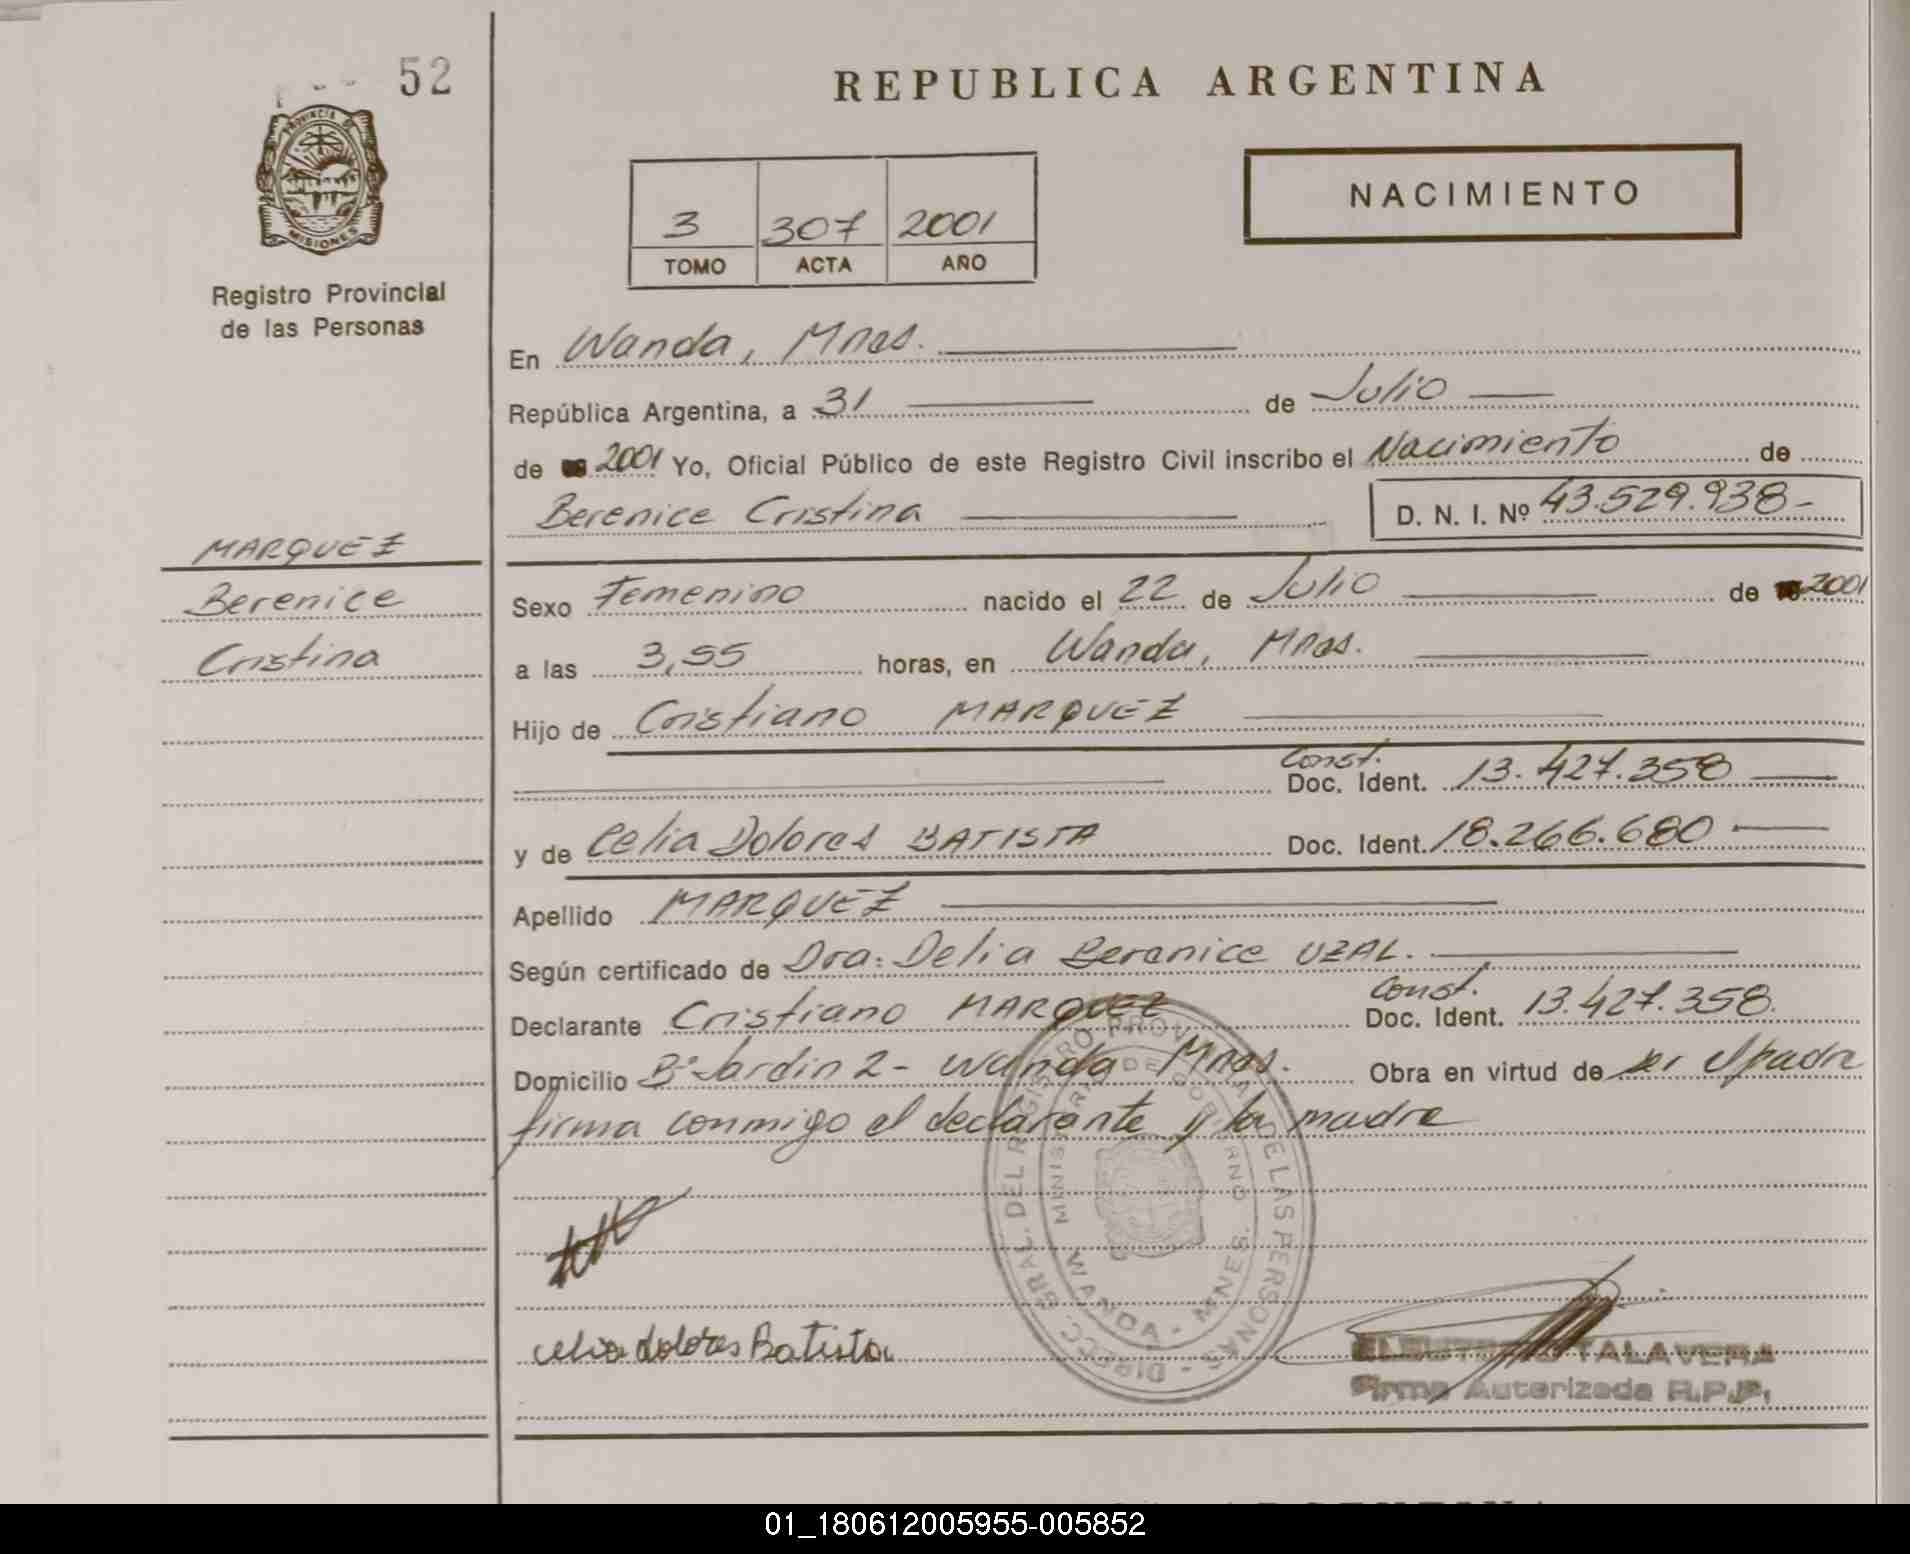 52
PROVINCIA DE
MISIONES
Registro Provincial
de las Personas
REPUBLICA ARGENTINA
NACIMIENTO
3 307 2001
TOMO ACTA AÑO
En Wanda, Mnes.
República Argentina, a 31 de Julio
de 2001 Yo, Oficial Público de este Registro Civil inscribo el Nacimiento de
Berenice Cristina D. N. I. Nº 43.529.938-
MARQUEZ
Berenice
Cristina
Sexo Femenino nacido el 22 de Julio de 2001
a las 3,55 horas, en Wanda, Mnes.
Hijo de Cristiano MARQUEZ
Const.
Doc. Ident. 13.427.358
y de Celia Dolores BATISTA Doc. Ident. 18.266.680
Apellido MARQUEZ
Según certificado de Dra. Delia Berenice UZAL.
Const.
Declarante Cristiano MARQUEZ Doc. Ident. 13.427.358.
Domicilio Bº Jardin 2- Wanda Mnes. Obra en virtud de ser el padre
firma conmigo el declarante y la madre
DIREC. GRAL. DEL REGISTRO PROVINCIAL DE LAS PERSONAS -
MINISTERIO DE GOBIERNO
WANDA - MNES.
celia dolores Batista
ELEUTERIO TALAVERA
Firma Autorizada R.P.P.
01_180612005955-005852